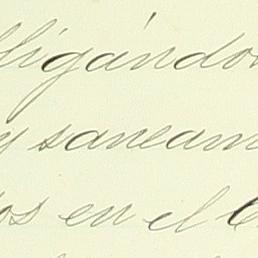 lligándo
y saneam
os en el C